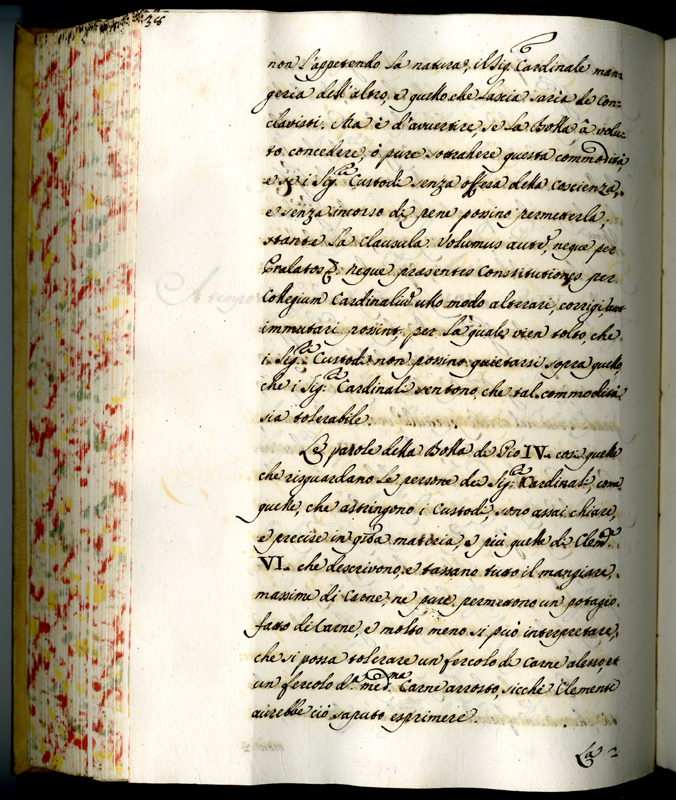 38
non l'appetendo la natura, il Sig.r Cardinale man=
geria dell'altro, e quello che lascia saria de Con=
clavisti. Ma è d'avvertire se la Bolla à volu=
to concedere, ò pure sottrahere questa commodità,
e se i Sig.ri Custodi senza offesa della coscienza,
e senza incorso di pene possino permetterla,
stante la clausula Volumus autẽ, neque per
Prelatos &. neque presentes Constitutiones per
Collegium Cardinaliũ ullo modo alterari, corrigi, aut
immutari possint, per la quale vien tolto, che
i Sig.ri Custodi non possino quietarsi sopra quello,
che i Sig.ri Cardinali sentono, che tal commodità
sia tolerabile.
Le parole della Bolla di Pio IV. così quelle
che risguardano le persone de Sig.ri Cardinali, come
quelle, che astringono i Custodi, sono assai chiare,
e precise in q̃sta materia, e più quelle di Clem.e
VI. che descrivono, e tassano tutto il mangiare,
massime di Carne, ne pure permettono un potagio
fatto di Carne, e molto meno si può interpretare,
che si possa tolerare un fercolo di Carne alesso, et
un fercolo d.a med.ma Carne arrosto, sicche Clemente
averebbe ciò saputo esprimere.
La